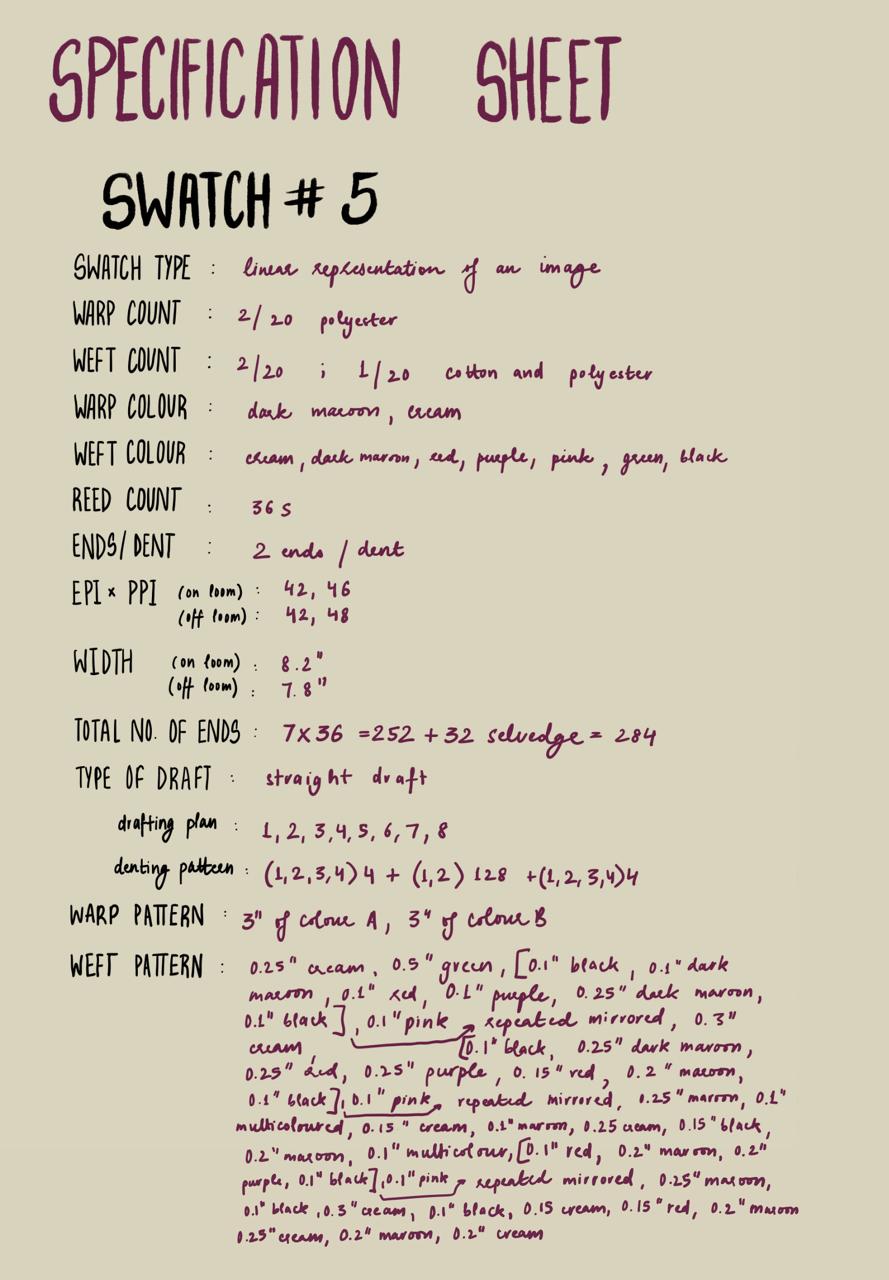 SPECIFICATION SHEET
SWATCH # 5
SWATCH TYPE : linear representation of an image
WARP COUNT : 2/20 polyester
WEFT COUNT : 2/20 ; 1/20 cotton and polyester
WARP COLOUR : dark maroon, cream
WEFT COLOUR : cream, dark maroon, red, purple, pink, green, black
REED COUNT : 36 s
ENDS/DENT : 2 ends / dent
EPI × PPI (on loom) : 42, 46
(off loom) : 42, 48
WIDTH (on loom) : 8.2"
(off loom) : 7.8"
TOTAL NO. OF ENDS : 7x36 =252 + 32 selvedge = 284
TYPE OF DRAFT : straight draft
drafting plan : 1, 2, 3,4, 5, 6, 7, 8
denting pattern : (1,2,3,4) 4 + (1,2) 128 +(1,2,3,4)4
WARP PATTERN : 3" of colour A, 3" of colour B
WEFT PATTERN : 0.25" cream, 0.5" green, [0.1" black, 0.1" dark
maroon, 0.1" red, 0.1" purple, 0.25" dark maroon,
0.1" black], 0.1" pink repeated mirrored, 0.3"
cream, [0.1" black, 0.25" dark maroon,
0.25" red, 0.25" purple, 0.15" red, 0.2" maroon,
0.1" black], 0.1" pink, repeated mirrored, 0.25" maroon, 0.1"
multicoloured, 0.15" cream, 0.1" maroon, 0.25 cream, 0.15" black,
0.2" maroon, 0.1" multicolour, [0.1" red, 0.2" maroon, 0.2"
purple, 0.1" black], 0.1" pink repeated mirrored, 0.25" maroon,
0.1" black, 0.3" cream, 0.1" black, 0.15 cream, 0.15" red, 0.2" maroon
0.25" cream, 0.2" maroon, 0.2" cream